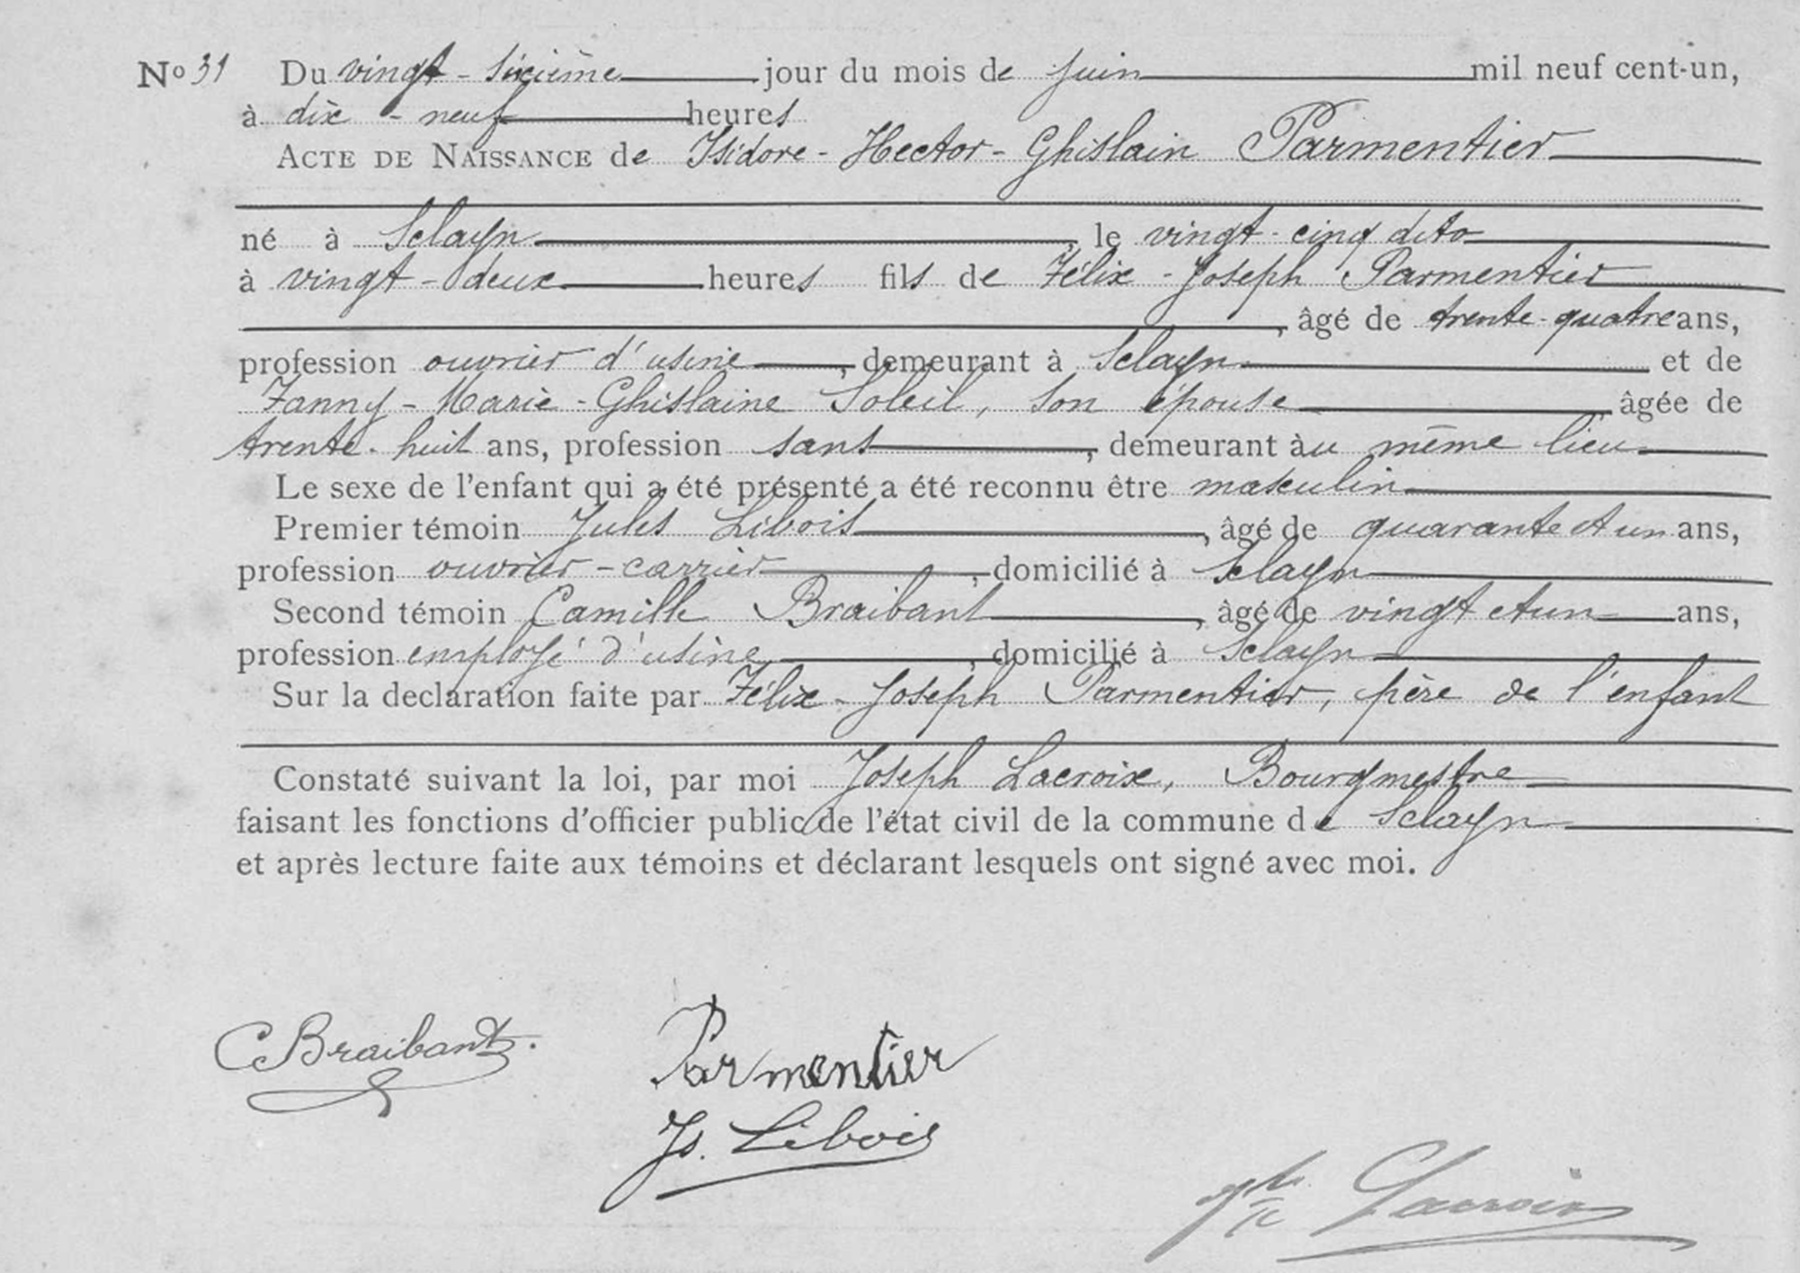 No 31 Du vingt-sixième jour du mois de juin mil neuf cent-un,
à dix-neuf heures
ACTE DE NAISSANCE de Isidore-Hector-Ghislain Parmentier
né à Sclayn, le vingt-cinq dito
à vingt-deux heures fils de Félix-Joseph Parmentier
, âgé de trente-quatre ans,
profession ouvrier d'usine, demeurant à Sclayn et de
Fanny-Marie-Ghislaine Soleil, son épouse, âgée de
trente-huit ans, profession sans, demeurant àu même lieu
Le sexe de l'enfant qui a été présenté a été reconnu être masculin
Premier témoin Jules Libois, âgé de quarante et un ans,
profession ouvrier-carrier, domicilié à Sclayn
Second témoin Camille Braibant, âgé de vingt et un ans,
profession employé d'usine, domicilié à Sclayn
Sur la declaration faite par Félix-Joseph Parmentier, père de l'enfant
Constaté suivant la loi, par moi Joseph Lacroix, Bourgmestre
faisant les fonctions d'officier public de l'état civil de la commune de Sclayn
et après lecture faite aux témoins et déclarant lesquels ont signé avec moi.
C Braibant.
Parmentier
Js. Libois
Lacroix